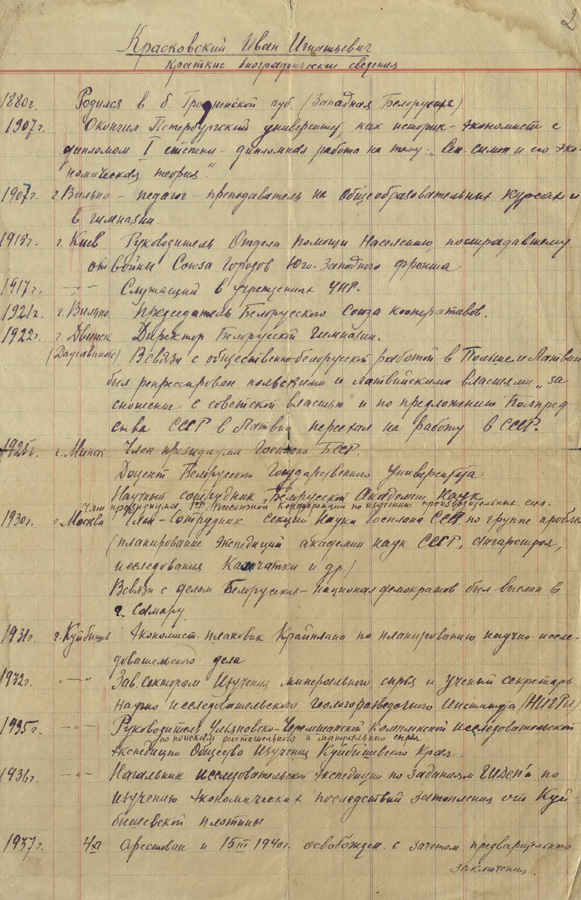 2
Красковский Иван Игнатьевич
краткие биографические сведения
1880г. Родился в б. Гродненской губ. (Западная Белоруссия)
1907г. Окончил Петербургский университет, как историк-экономист с
дипломом I степени - дипломная работа на тему: "Сен. симон и его эко-
номическая теория."
1907г. г. Вильно - педагог - преподаватель на Общеобразовательных курсах и
в гимназии.
1915г. г. Киев Руководитель Отдела помощи Населению, пострадавшему
от войны Союза Городов Юго-Западного фронта
1917г. -"- Служащий в учреждениях УНР.
1921г. г. Вильно Председатель Белорусского Союза кооперативов.
1922г. г. Двинск Директор Белорусской Гимназии.
(Даугавпилс) В связи с общественно-белорусской работой в Польше и Латвии
был репрессирован польскими и латвийскими властями "за
сношение с советской властью" и по предложению Полпред
ства СССР в Латвии переехал на работу в СССР.
1925г. г. Минск Член президиума Госплана БССР.
Доцент Белорусского Государственного Университета
Научный сотрудник Белорусской Академии Наук
Член президиума конференции по изучению производительных сил.
1930г. г. Москва Член-сотрудник секции Науки Госплана СССР по группе проблем
(планирование экспедиций академии наук СССР, Ангарстроя,
исследования Камчатки и др.)
В связи с делом Белорусских национал демократов был выслан в
г. Самару.
1931г. г. Куйбышев Экономист. плановик Крайплана по планированию научно-иссле-
довательского дела
1932г. -"- Зав. Сектором Изучения минерального сырья и ученый секретарь
научно исследовательского Геологоразведочного Института (НИГРИ)
1935г. -"- Руководитель Ульяновско-Черемшанской Комплексной исследовательской
по поискам растительного и минерального сырья
Экспедиции Общества Изучения Куйбышевского Края
1936г. -"- Начальник исследовательской экспедиции по заданиям по
изучению экономических последствий затопления от Куй
бышевской плотины
1937г. Арестован и 15 III 1940г. освобожден. с зачетом предварительного
заключения.